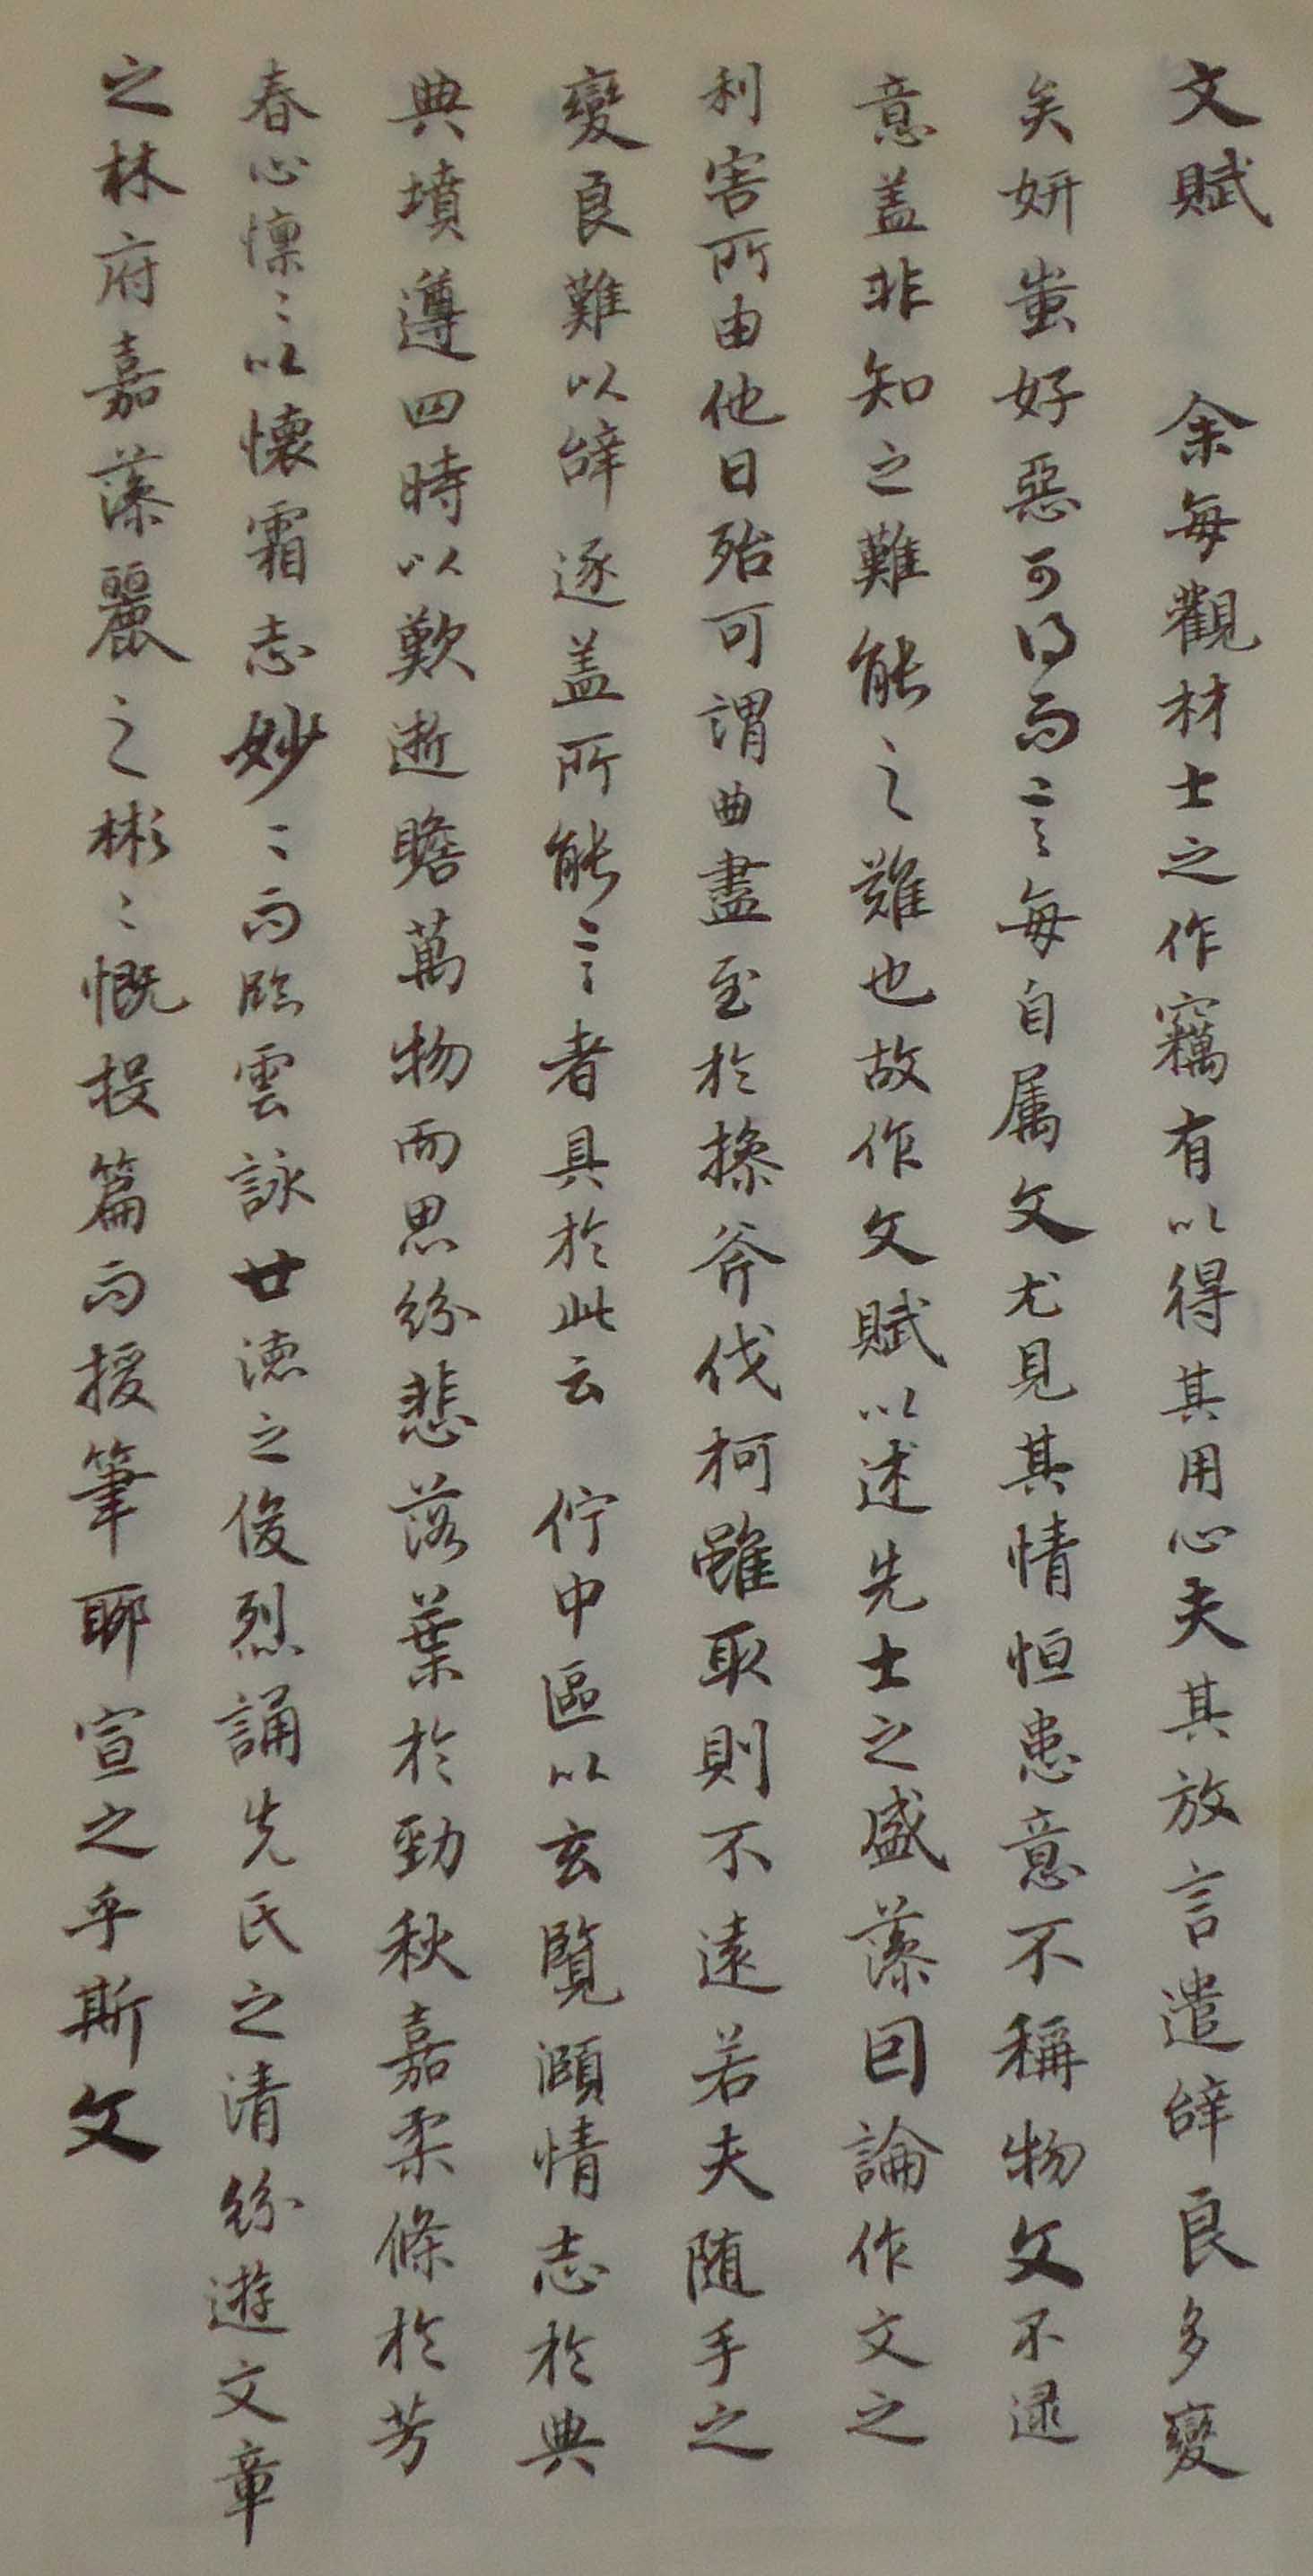 文賦　余每觀材士之作竊有以得其用心夫其放言遣辞良多變
矣妍蚩好惡可得而言每自属文尤見其情恒患意不稱物文不逮
意盖非知之難能之難也故作文賦以述先士之盛藻因論作文之
利害所由他日殆可謂曲盡至於操斧伐柯雖取則不遠若夫随手之
變良難以辞逐盖所能言者具於此云　佇中區以玄覽頤情志於典
典墳遵四時以歎逝瞻萬物而思紛悲落葉於勁秋嘉柔條於芳
春心懔〻以懐霜志妙〻而臨雲詠世德之俊烈誦先民之清紛遊文章
之林府嘉藻麗之彬〻慨投篇而援筆聊宣之乎斯文